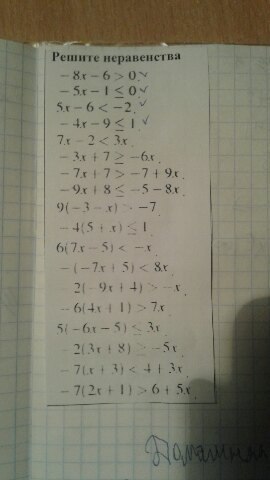 Решите неравенства
-8x-6>0 ✓
-5x-1≤0 ✓
5x-6<-2. ✓
-4x-9≤1 ✓
7x-2<3x.
-3x+7≥-6x.
-7x+7>-7+9x.
-9x+8≤-5-8x.
9(-3-x)>-7
-4(5+x)≤1.
6(7x-5)<-x.
-(-7x+5)<8x.
2(-9x+4)>-x.
-6(4x+1)>7x.
5(-6x-5)≤3x.
2(3x+8)≥-5x.
-7(x+3)<4+3x.
-7(2x+1)>6+5x.